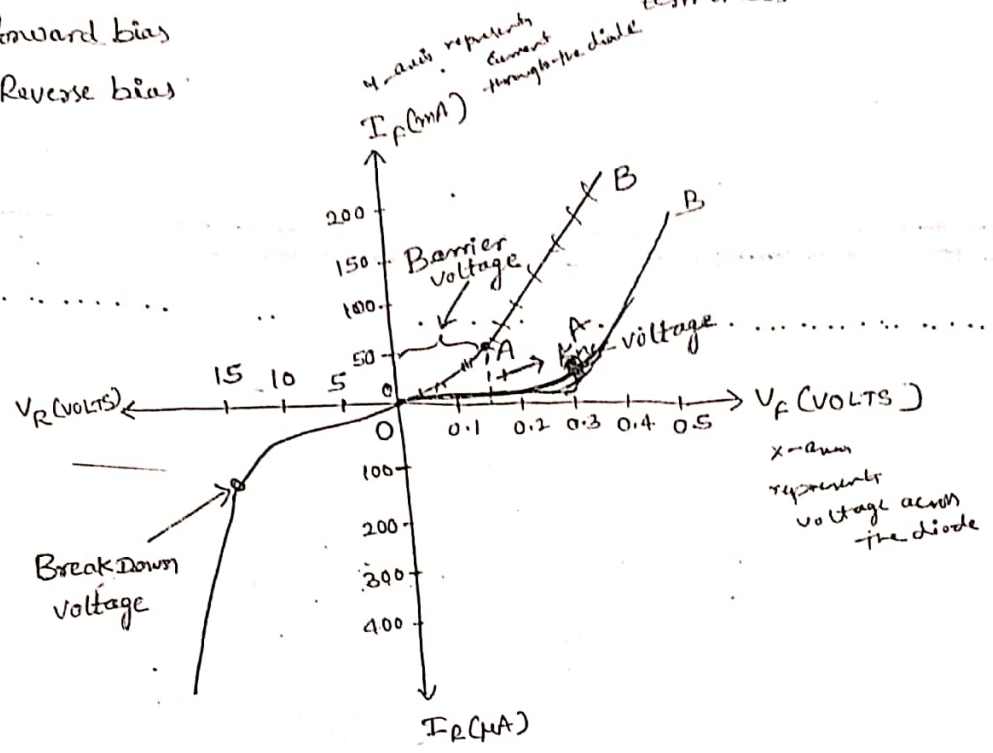 Forward bias
Reverse bias
y-axis represents
current
through the diode
I_F(mA)
B
B
200
150
100
50
0
Barrier
voltage
A
A
Knee-voltage
15 10 5
V_R(VOLTS)
0
0.1 0.2 0.3 0.4 0.5
V_F(VOLTS)
x-axis
represents
voltage across
the diode
100
200
300
400
BreakDown
voltage
I_R(μA)